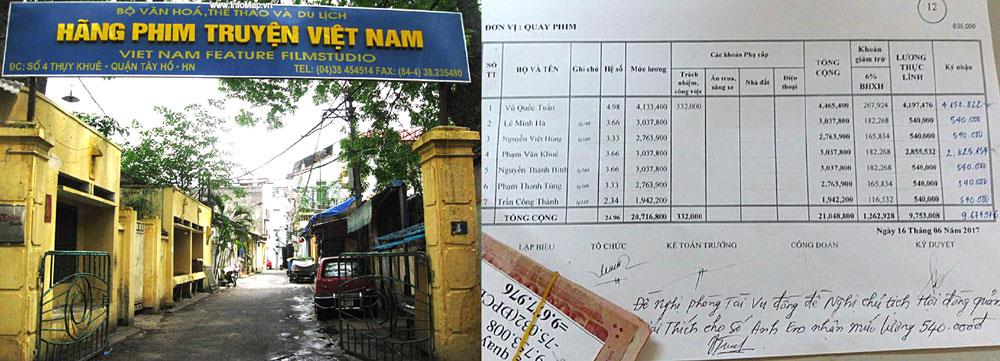 www.InfoMap.vn
BỘ VĂN HOÁ, THỂ THAO VÀ DU LỊCH
HÃNG PHIM TRUYỆN VIỆT NAM
VIET NAM FEATURE FILMSTUDIO
ĐC: SỐ 4 THỤY KHUÊ - QUẬN TÂY HỒ - HN
TEL: (04)38 454514 FAX: (84-4) 38.235480
4
12
ĐƠN VỊ : QUAY PHIM
630,000
SỐ TT HỌ VÀ TÊN Ghi chú Hệ số Mức lương Các khoản Phụ cấp TỔNG CỘNG Khoản giảm trừ LƯƠNG THỰC LĨNH Ký nhận
Trách nhiệm, công việc Ăn trưa, xăng xe Nhà đất Điện thoại 6% BHXH
1 Vũ Quốc Tuấn 4.98 4,133,400 332,000 4,465,400 267,924 4,197,476
2 Lê Minh Hà 3.66 3,037,800 3,037,800 182,268 540,000 540.000
3 Nguyễn Việt Hùng 3.33 2,763,900 2,763,900 165,834 540,000 540.000
4 Phạm Văn Khuê 3.66 3,037,800 3,037,800 182,268 2,855,532
5 Nguyễn Thành Bình 3.66 3,037,800 3,037,800 182,268 540,000 540.000
6 Phạm Thanh Tùng 3.33 2,763,900 2,763,900 165,834 540,000 540.000
7 Trần Công Thành 2.34 1,942,200 1,942,200 116,532 540,000 540.000
TỔNG CỘNG 24.96 20,716,800 332,000 21,048,800 1,262,928 9,753,008
Ngày 16 Tháng 06 Năm 2017
LẬP BIỂU TỔ CHỨC KẾ TOÁN TRƯỞNG CÔNG ĐOÀN KÝ DUYỆT
Đề nghị phòng Tài Vụ đồng đề Nghị chủ tịch Hội đồng quản
Thích cho Số Anh Em nhận mức lương 540.000đ
quay